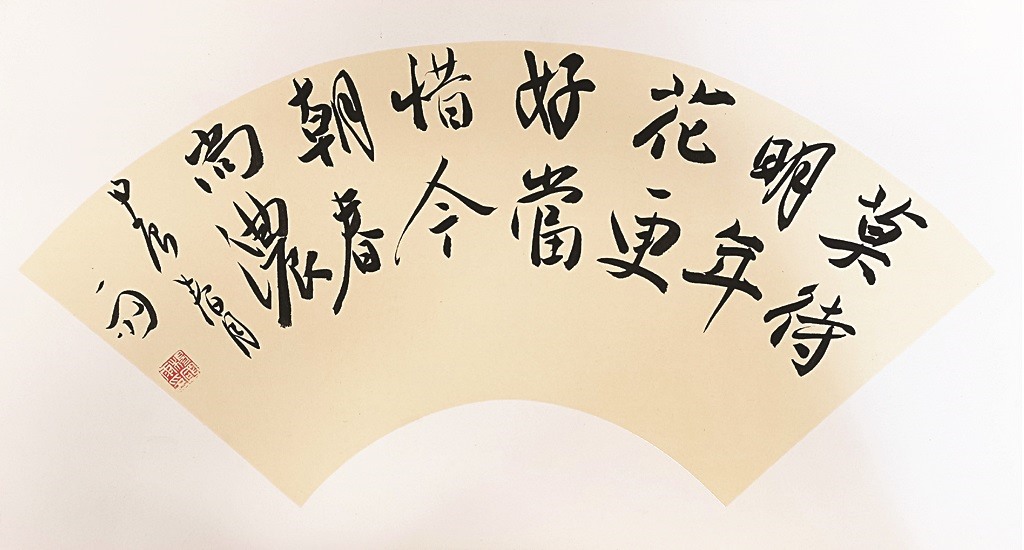 莫待
明年
花更
好當
惜今
朝春
尚濃